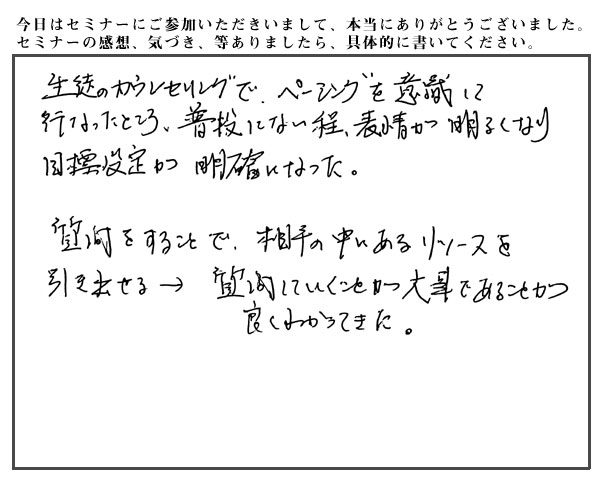 今日はセミナーにご参加いただきいまして、本当にありがとうございました。
セミナーの感想、気づき、等ありましたら、具体的に書いてください。
生徒のカウンセリングで、ペーシングを意識して
行なったところ、普段にない程、表情が明るくなり
目標設定が明確になった。
質問をすることで、相手の中にあるリソースを
引き出せる→質問していくことが大事であることが
良くわかってきた。